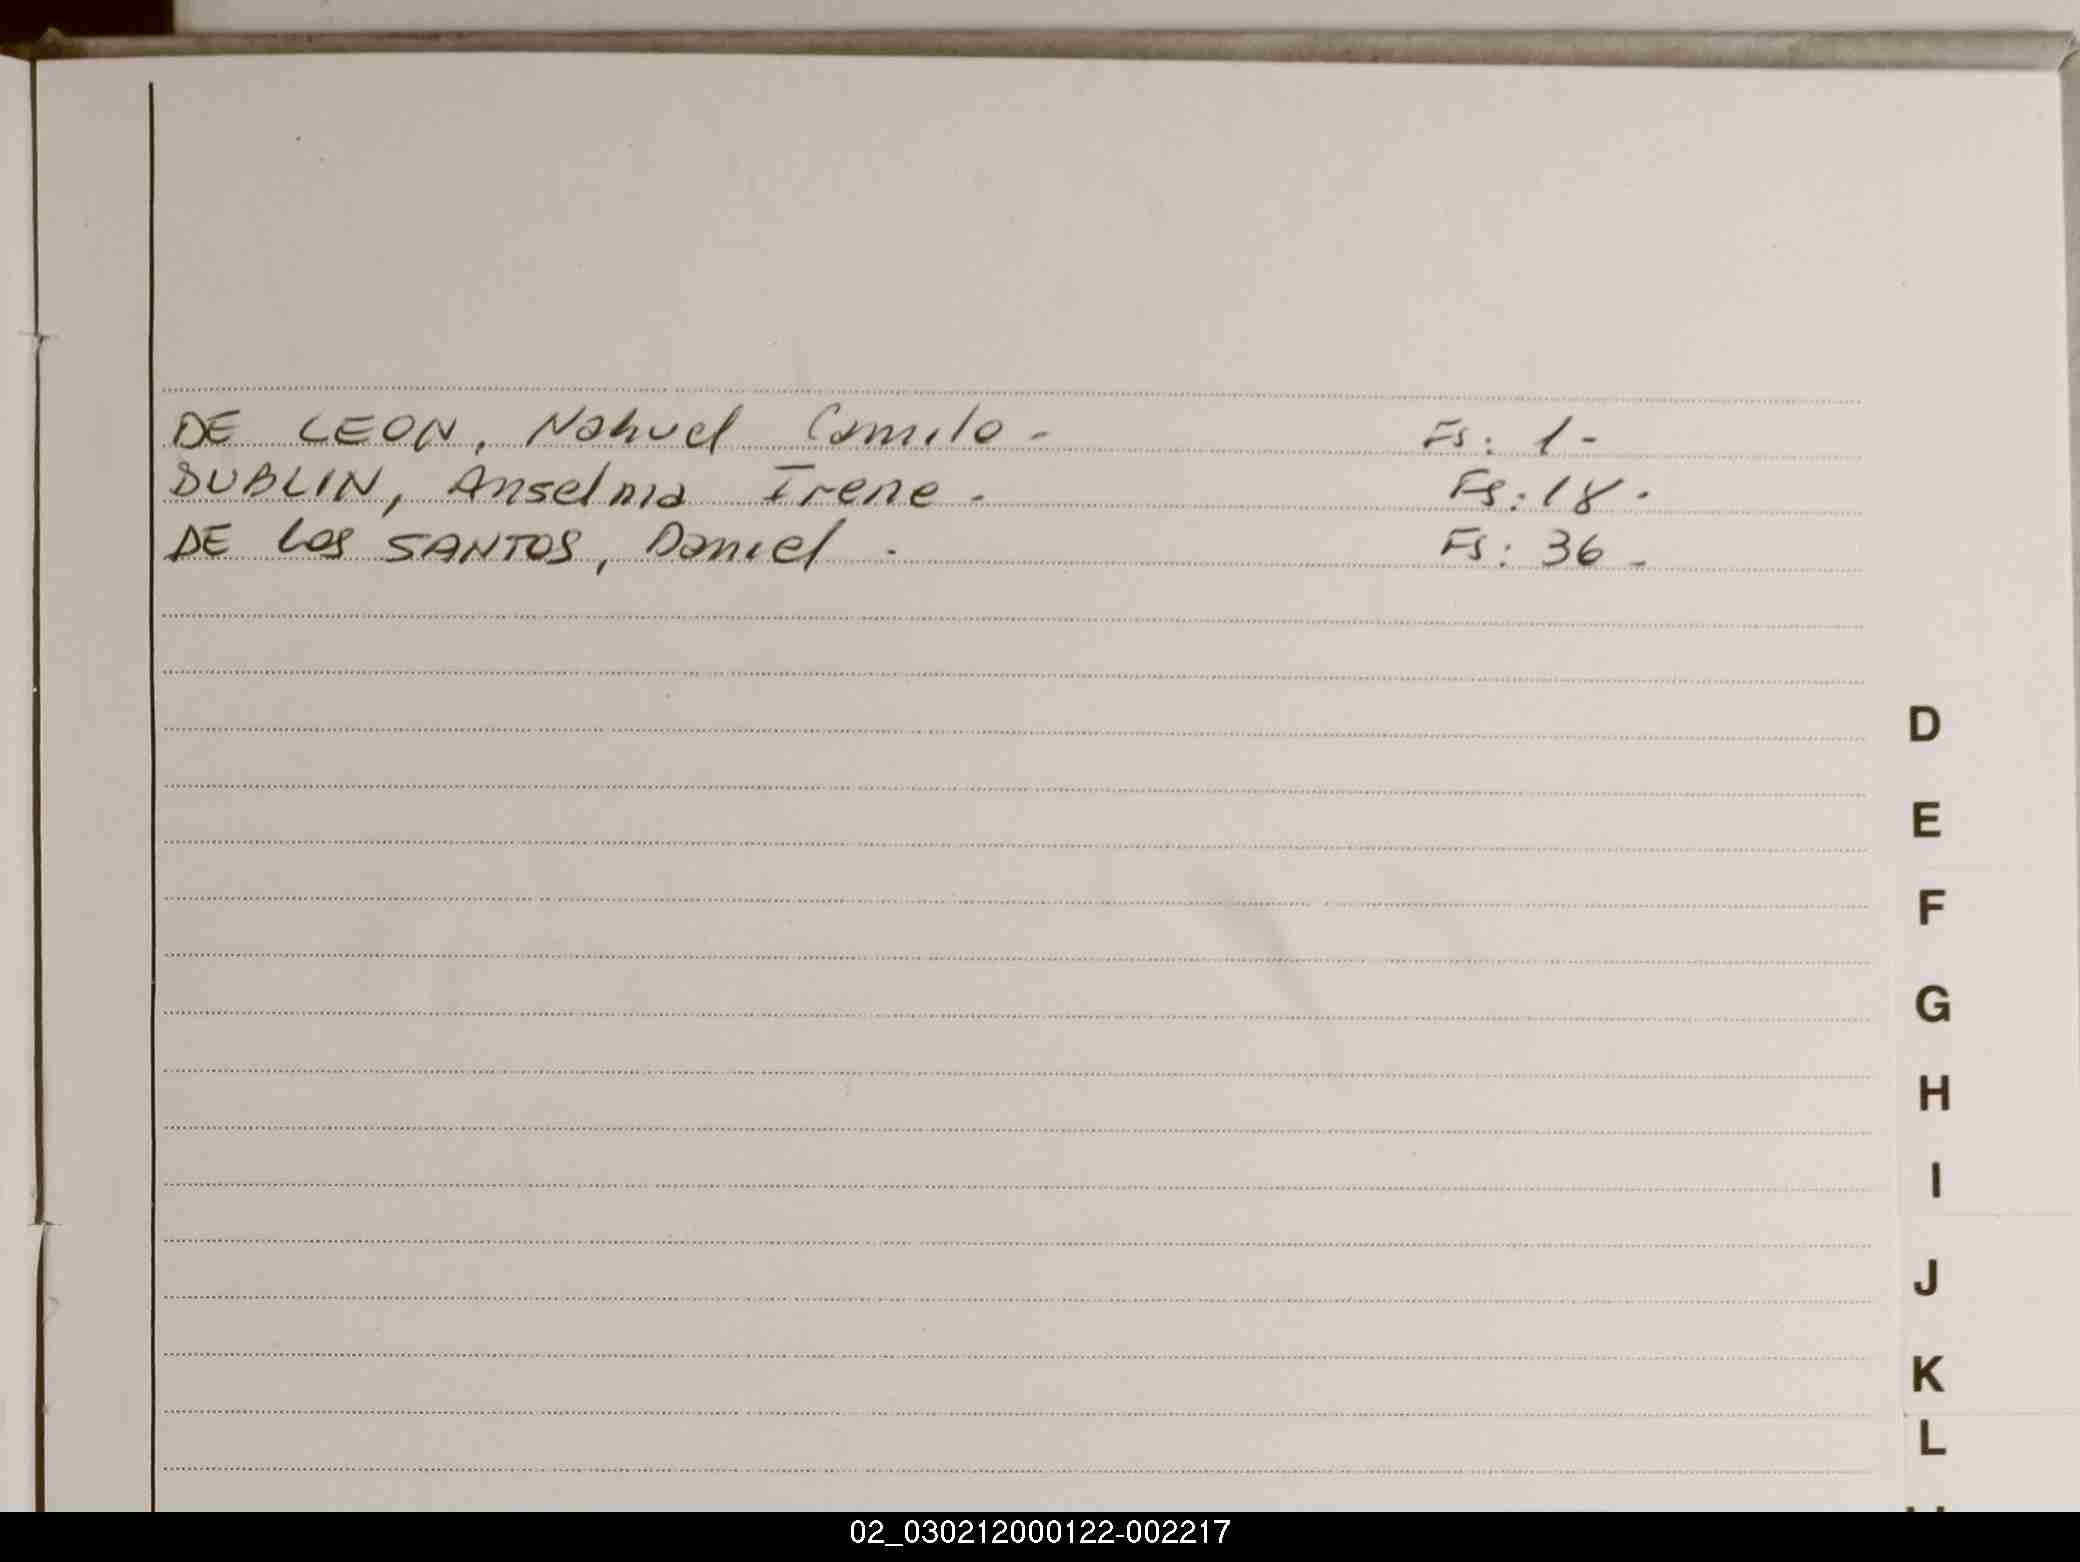 DE LEON, Nahuel Camilo - Fs: 1 -
DUBLIN, Anselma Irene - Fs: 18 -
DE LOS SANTOS, Daniel . Fs: 36 -
D
E
F
G
H
I
J
K
L
02_030212000122-002217